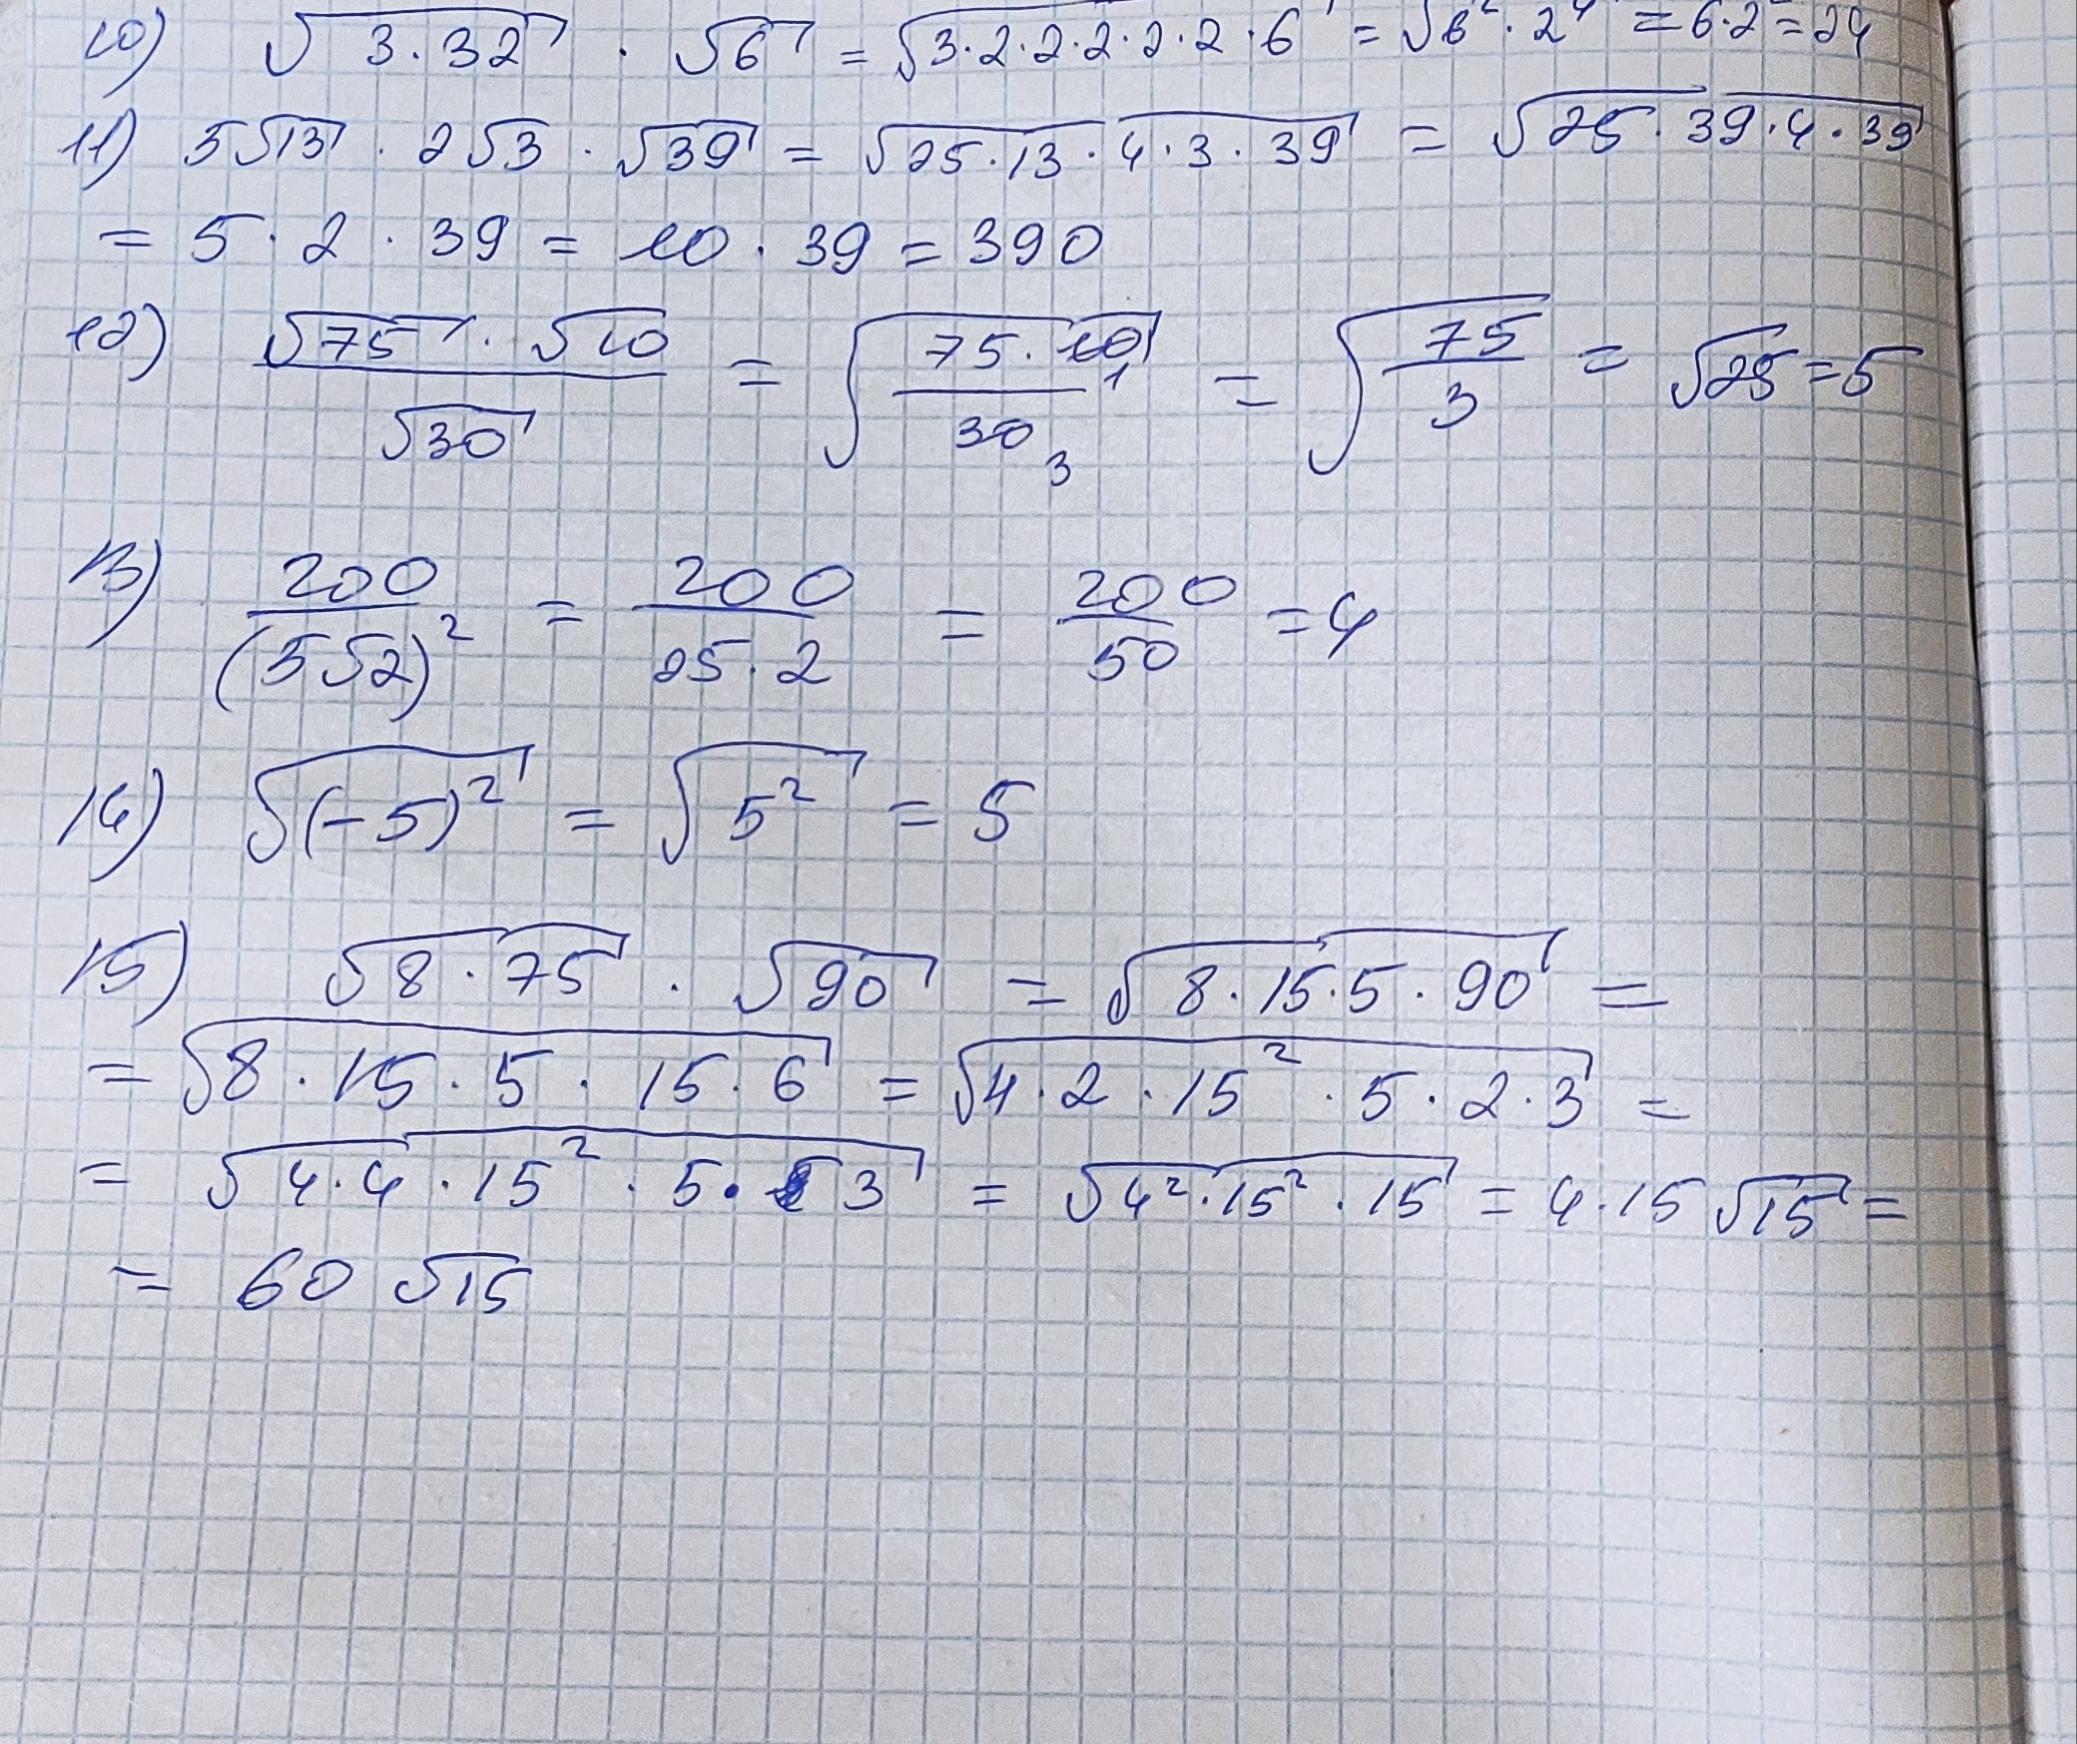 10) √(3·32) · √6 = √(3·2·2·2·2·2·6) = √(6²·2⁴) = 6·2² = 24
11) 5√13 · 2√3 · √39 = √(25·13·4·3·39) = √(25·39·4·39)
= 5·2·39 = 10·39 = 390
12) (√75 · √10)/√30 = √((75·10)/30) 1 3 = √(75/3) = √25 = 5
13) 200/(5√2)² = 200/(25·2) = 200/50 = 4
14) √((-5)²) = √(5²) = 5
15) √(8·75) · √90 = √(8·15·5·90) =
= √(8·15·5·15·6) = √(4·2·15²·5·2·3) =
= √(4·4·15²·5·3) = √(4²·15²·15) = 4·15√15 =
= 60√15